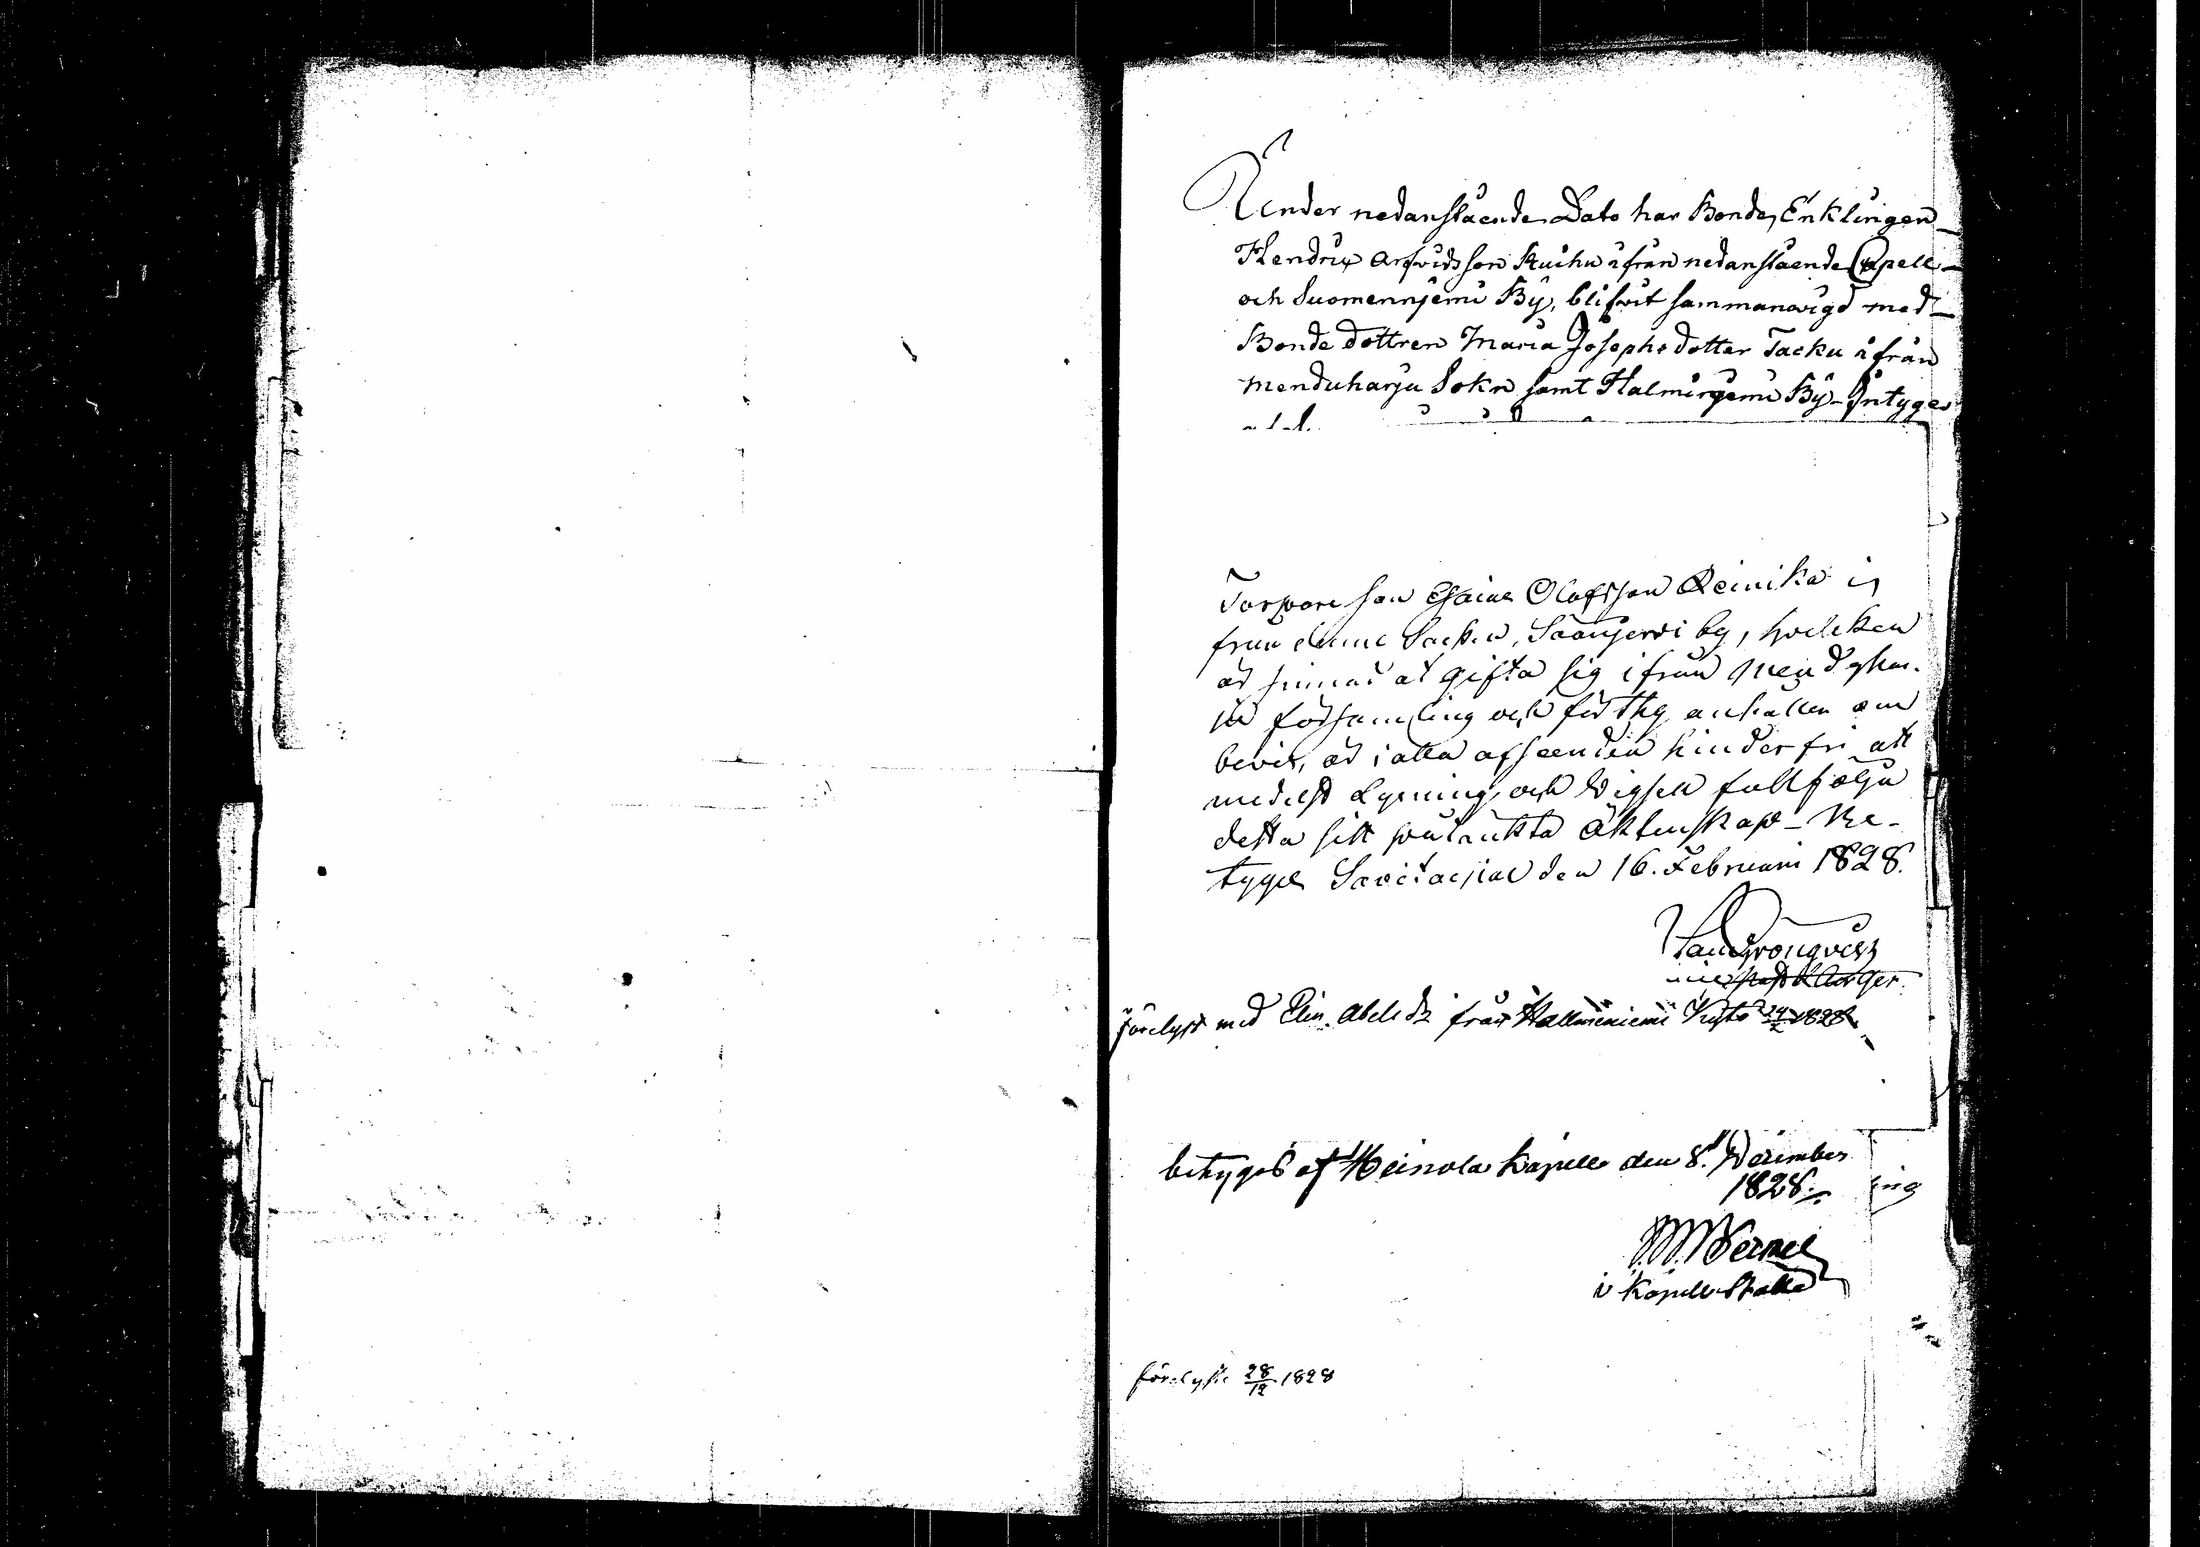 Under nedanstående Dato har Bonde, Enklingen
Hendrix Arfvidsson Kuihu ifrån nedanstående Capell
och Suomenniemi By, blifvit sammanvigd med
Bonde dottren Maria Josephsdotter Tacku ifrån
Menduharju Sokn samt Halminjemi By – Intyges
Torpare son Esaias Olofsson Reinika i
från denna Sochn, Saanjervi by, hvilken
är sinnad at gifta sig ifrån Mendyhar-
ju församling och för thy anhållen om
bevis, är i alla afseenden hinderfri att
medelst Lysning och Vigsel fullfölja
detta sitt påtänkta Äktenskap – Be-
tyges Savitaipal den 16. Februari 1828.
förelyst med Elin. Abelsdr från Hallminiemi 24/2 1828
betygas af Heinola Kapell den 8. December
1828.
ing
i Kapell
förelyste 28/12 1828